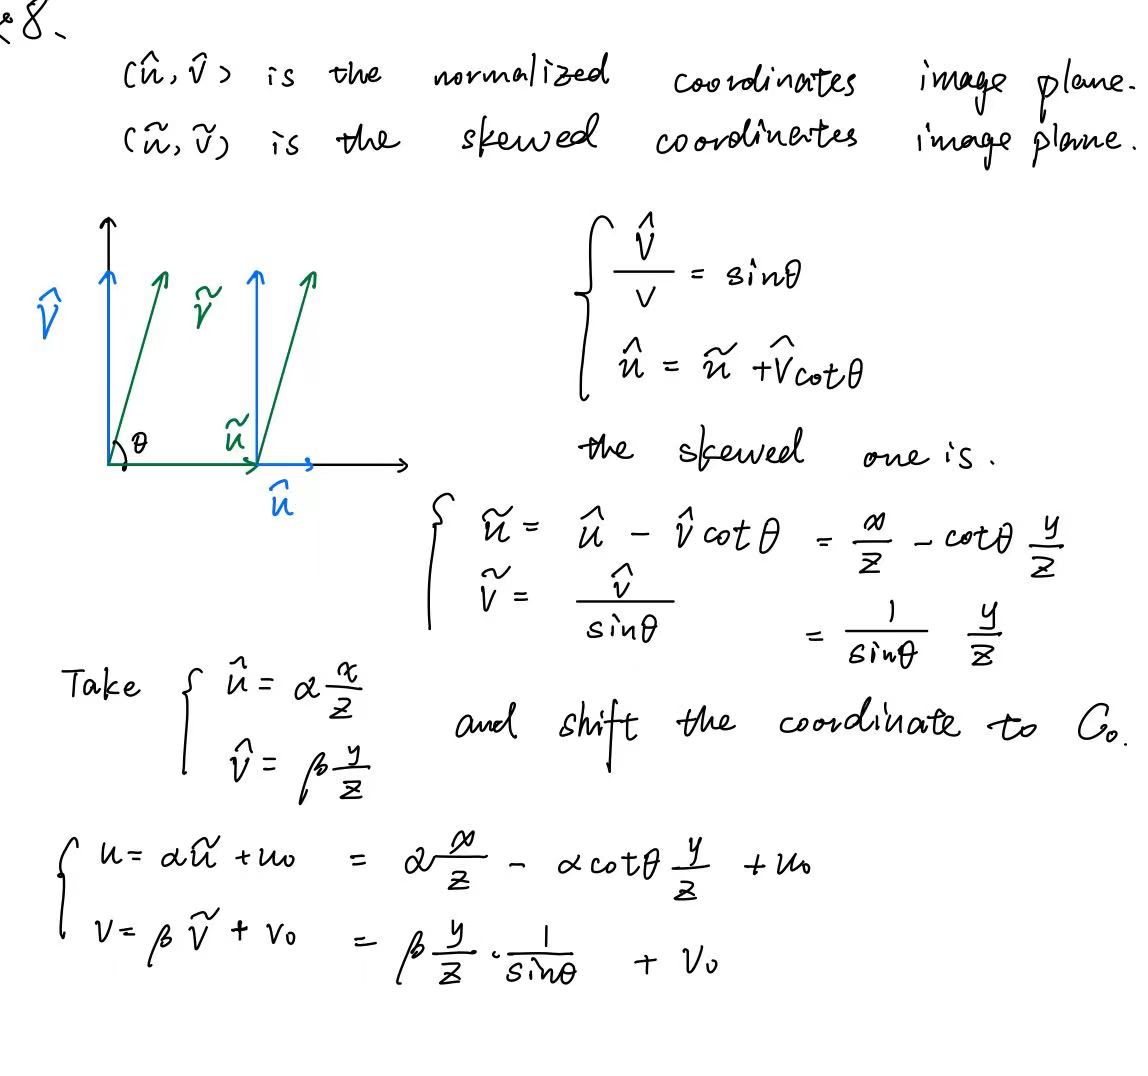 8.
(û, v̂) is the normalized coordinates image plane.
(ũ, ṽ) is the skewed coordinates image plane.
v̂ / v = sinθ
û = ũ + v̂ cotθ
v̂ ṽ
θ ũ
û
the skewed one is.
ũ = û - v̂ cotθ = x/z - cotθ y/z
ṽ = v̂ / sinθ = 1/sinθ y/z
Take { û = α x/z
v̂ = β y/z
and shift the coordinate to C₀.
u = αũ + u₀ = α x/z - α cotθ y/z + u₀
v = β ṽ + v₀ = β y/z · 1/sinθ + v₀